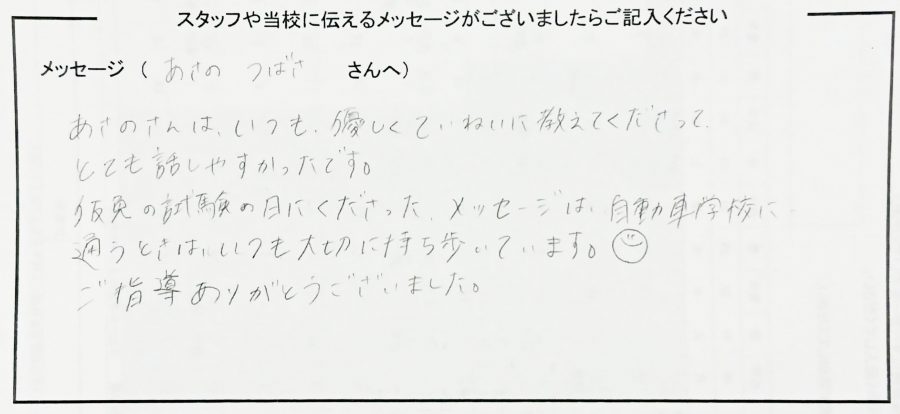 スタッフや当校に伝えるメッセージがございましたらご記入ください
メッセージ ( あさの つばさ さんへ)
あさのさんは、いつも、優しくていねいに教えてくださって、
とても話しやすかったです。
仮免の試験の日にくださった、メッセージは、自動車学校に
通うときは、いつも大切に持ち歩いています。
ご指導ありがとうございました。